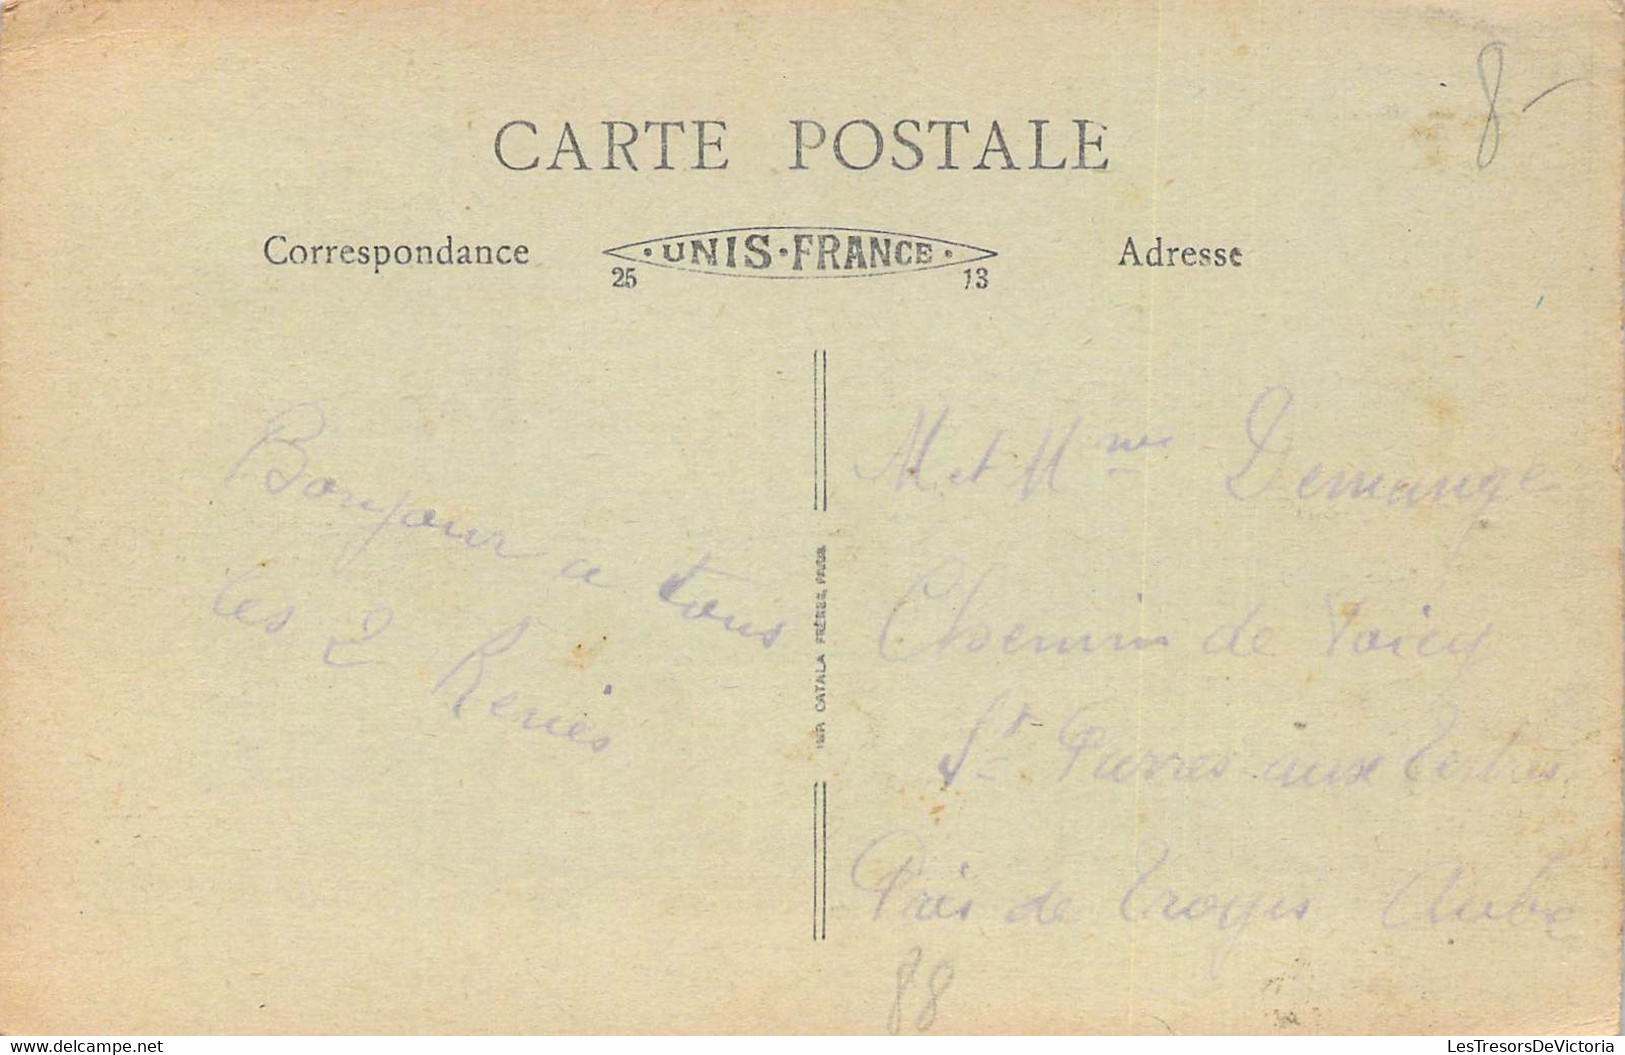 8-
CARTE POSTALE
Correspondance
· UNIS · FRANCE ·
25 13
Adresse
Bonjour a tous
les 2 Renies
IMP. CATALA FRÈRES, PARIS
M et Mme Demange
Chemin de
St Pierres aux
Près de Troyes Aube
88
delcampe.net
LesTresorsDeVictoria